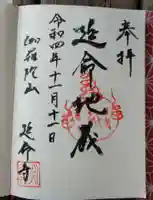 奉拝
延命地蔵
令和四年十一月十一日
伽羅陀山
延命寺